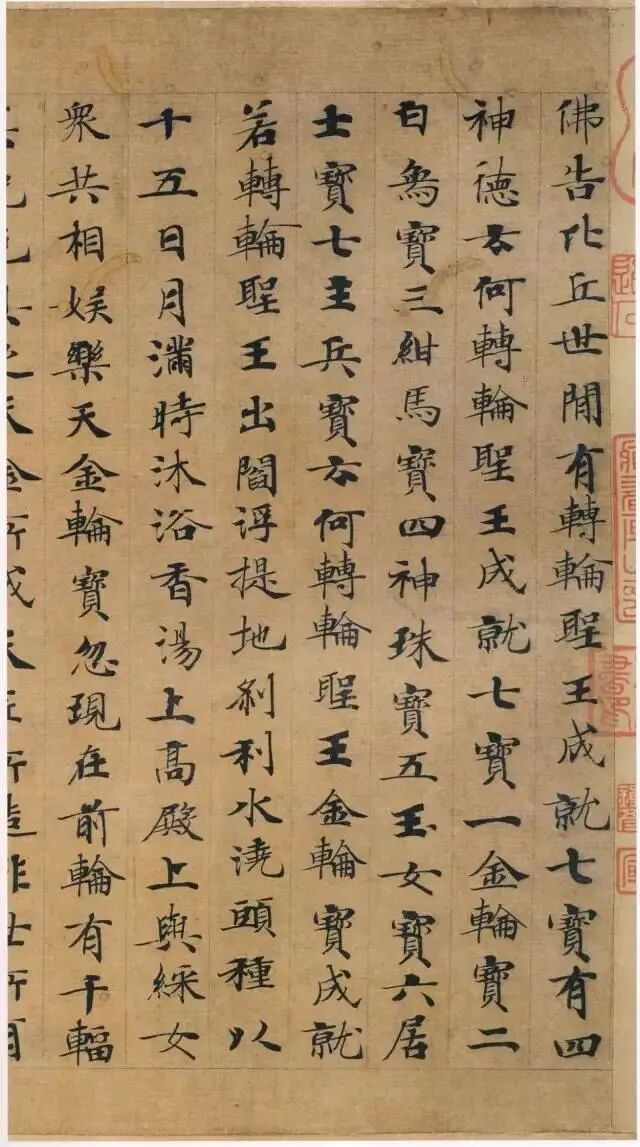 佛告比丘世間有轉輪聖王成就七寶有四
神德云何轉輪聖王成就七寶一金輪寶二
白象寶三紺馬寶四神珠寶五玉女寶六居
士寶七主兵寶云何轉輪聖王金輪寶成就
若轉輪聖王出閻浮提地剎利水澆頭種以
十五日月滿時沐浴香湯上高殿上與綵女
眾共相娛樂天金輪寶忽現在前輪有千輻
天金所成天匠所造非世所有